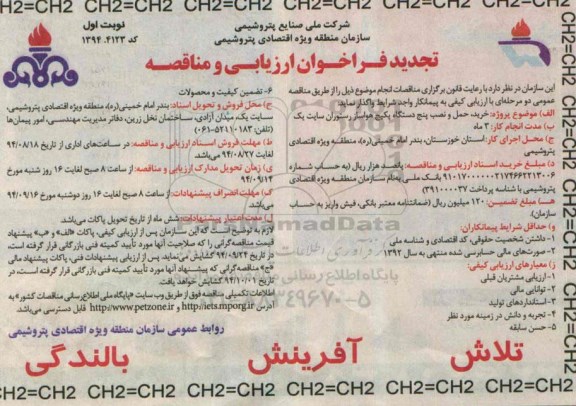 CH2=CH2 CH2=CH2 CH2=CH2 CH2=CH2 CH2=CH2 CH2=CH2
شرکت ملی صنایع پتروشیمی
سازمان منطقه ویژه اقتصادی پتروشیمی
نوبت اول
کد ۴۱۲۳. ۱۳۹۴
تجدید فراخوان ارزیابی و مناقصه
این سازمان در نظر دارد با رعایت قانون برگزاری مناقصات انجام موضوع ذیل را از طریق مناقصه
عمومی دو مرحله‌ای با ارزیابی کیفی به پیمانکار واجد شرایط واگذار نماید.
الف) موضوع پروژه: خرید، حمل و نصب پنج دستگاه پکیج هواساز رستوران سایت یک
ب) مدت انجام کار: ۳ ماه
ج) محل اجرای کار: استان خوزستان، بندر امام خمینی(ره)، منطقه ویژه اقتصادی
پتروشیمی
د) مبلغ خرید اسناد ارزیابی و مناقصه: پانصد هزار ریال (به حساب شماره
بانک ملی بنام سازمان منطقه ویژه اقتصادی
پتروشیمی با شناسه پرداخت ۳۹۱۰۰۰۰۳۷)
ه) مبلغ تضمین: ۱۲۰ میلیون ریال (ضمانتنامه معتبر بانکی، فیش واریز به حساب
سازمان).
و) حداقل شرایط پیمانکاران:
۱- داشتن شخصیت حقوقی، کد اقتصادی و شناسه ملی
۲- صورت‌های مالی حسابرسی شده منتهی به سال ۱۳۹۲
ز) معیارهای ارزیابی کیفی:
۱- ارزیابی مشتریان قبلی
۲- توانایی مالی
۳- استانداردهای تولید
۴- تجربه و دانش در زمینه مورد نظر
۵- حسن سابقه
۶- تضمین کیفیت و محصولات
ح) محل فروش و تحویل اسناد: بندر امام خمینی(ره)، منطقه ویژه اقتصادی پتروشیمی،
سایت یک، میدان آزادی، ساختمان نخل زرین، دفتر مدیریت مهندسی، امور پیمان‌ها
(تلفن: ۵۲۱۱۰۱۸۳-۰۶۱)
ط) مهلت فروش اسناد ارزیابی و مناقصه: در ساعت‌های اداری از تاریخ ۹۴/۰۸/۱۸
لغایت ۹۴/۰۸/۲۷ می‌باشد.
ی) زمان تحویل مدارک ارزیابی و مناقصه: از ساعت ۸ صبح لغایت ۱۶ روز شنبه مورخ
۹۴/۰۹/۱۴
ک) مهلت انصراف پیشنهادات: از ساعت ۸ صبح لغایت ۱۶ روز دوشنبه مورخ ۹۴/۰۹/۱۶
می‌باشد.
ل) مدت اعتبار پیشنهادات: شش ماه از تاریخ تحویل پاکات می‌باشد.
لازم به توضیح است که این سازمان پس از ارزیابی کیفی، پاکات «الف» و «ب» پیشنهاد
قیمت مناقصه‌گرانی را که صلاحیت آنها مورد تأیید کمیته فنی بازرگانی قرار گرفته است،
در تاریخ ۹۴/۰۹/۲۴ گشایش می‌نماید. پس از ارزیابی پیشنهادات فنی، پاکات پیشنهاد مالی
«ج» مناقصه‌گرانی که پیشنهاد آنها مورد تأیید کمیته فنی بازرگانی قرار گرفته است، در
تاریخ ۹۴/۱۰/۰۱ گشایش خواهد یافت.
اطلاعات تکمیلی مناقصه فوق از طریق وب سایت «پایگاه ملی اطلاع‌رسانی مناقصات کشور» به
آدرس http://iets.mporg.ir و http://www.petzone.ir قابل دسترسی می‌باشد.
روابط عمومی سازمان منطقه ویژه اقتصادی پتروشیمی
تلاش آفرینش بالندگی
CH2=CH2 CH2=CH2 CH2=CH2 CH2=CH2 CH2=CH2 CH2=CH2